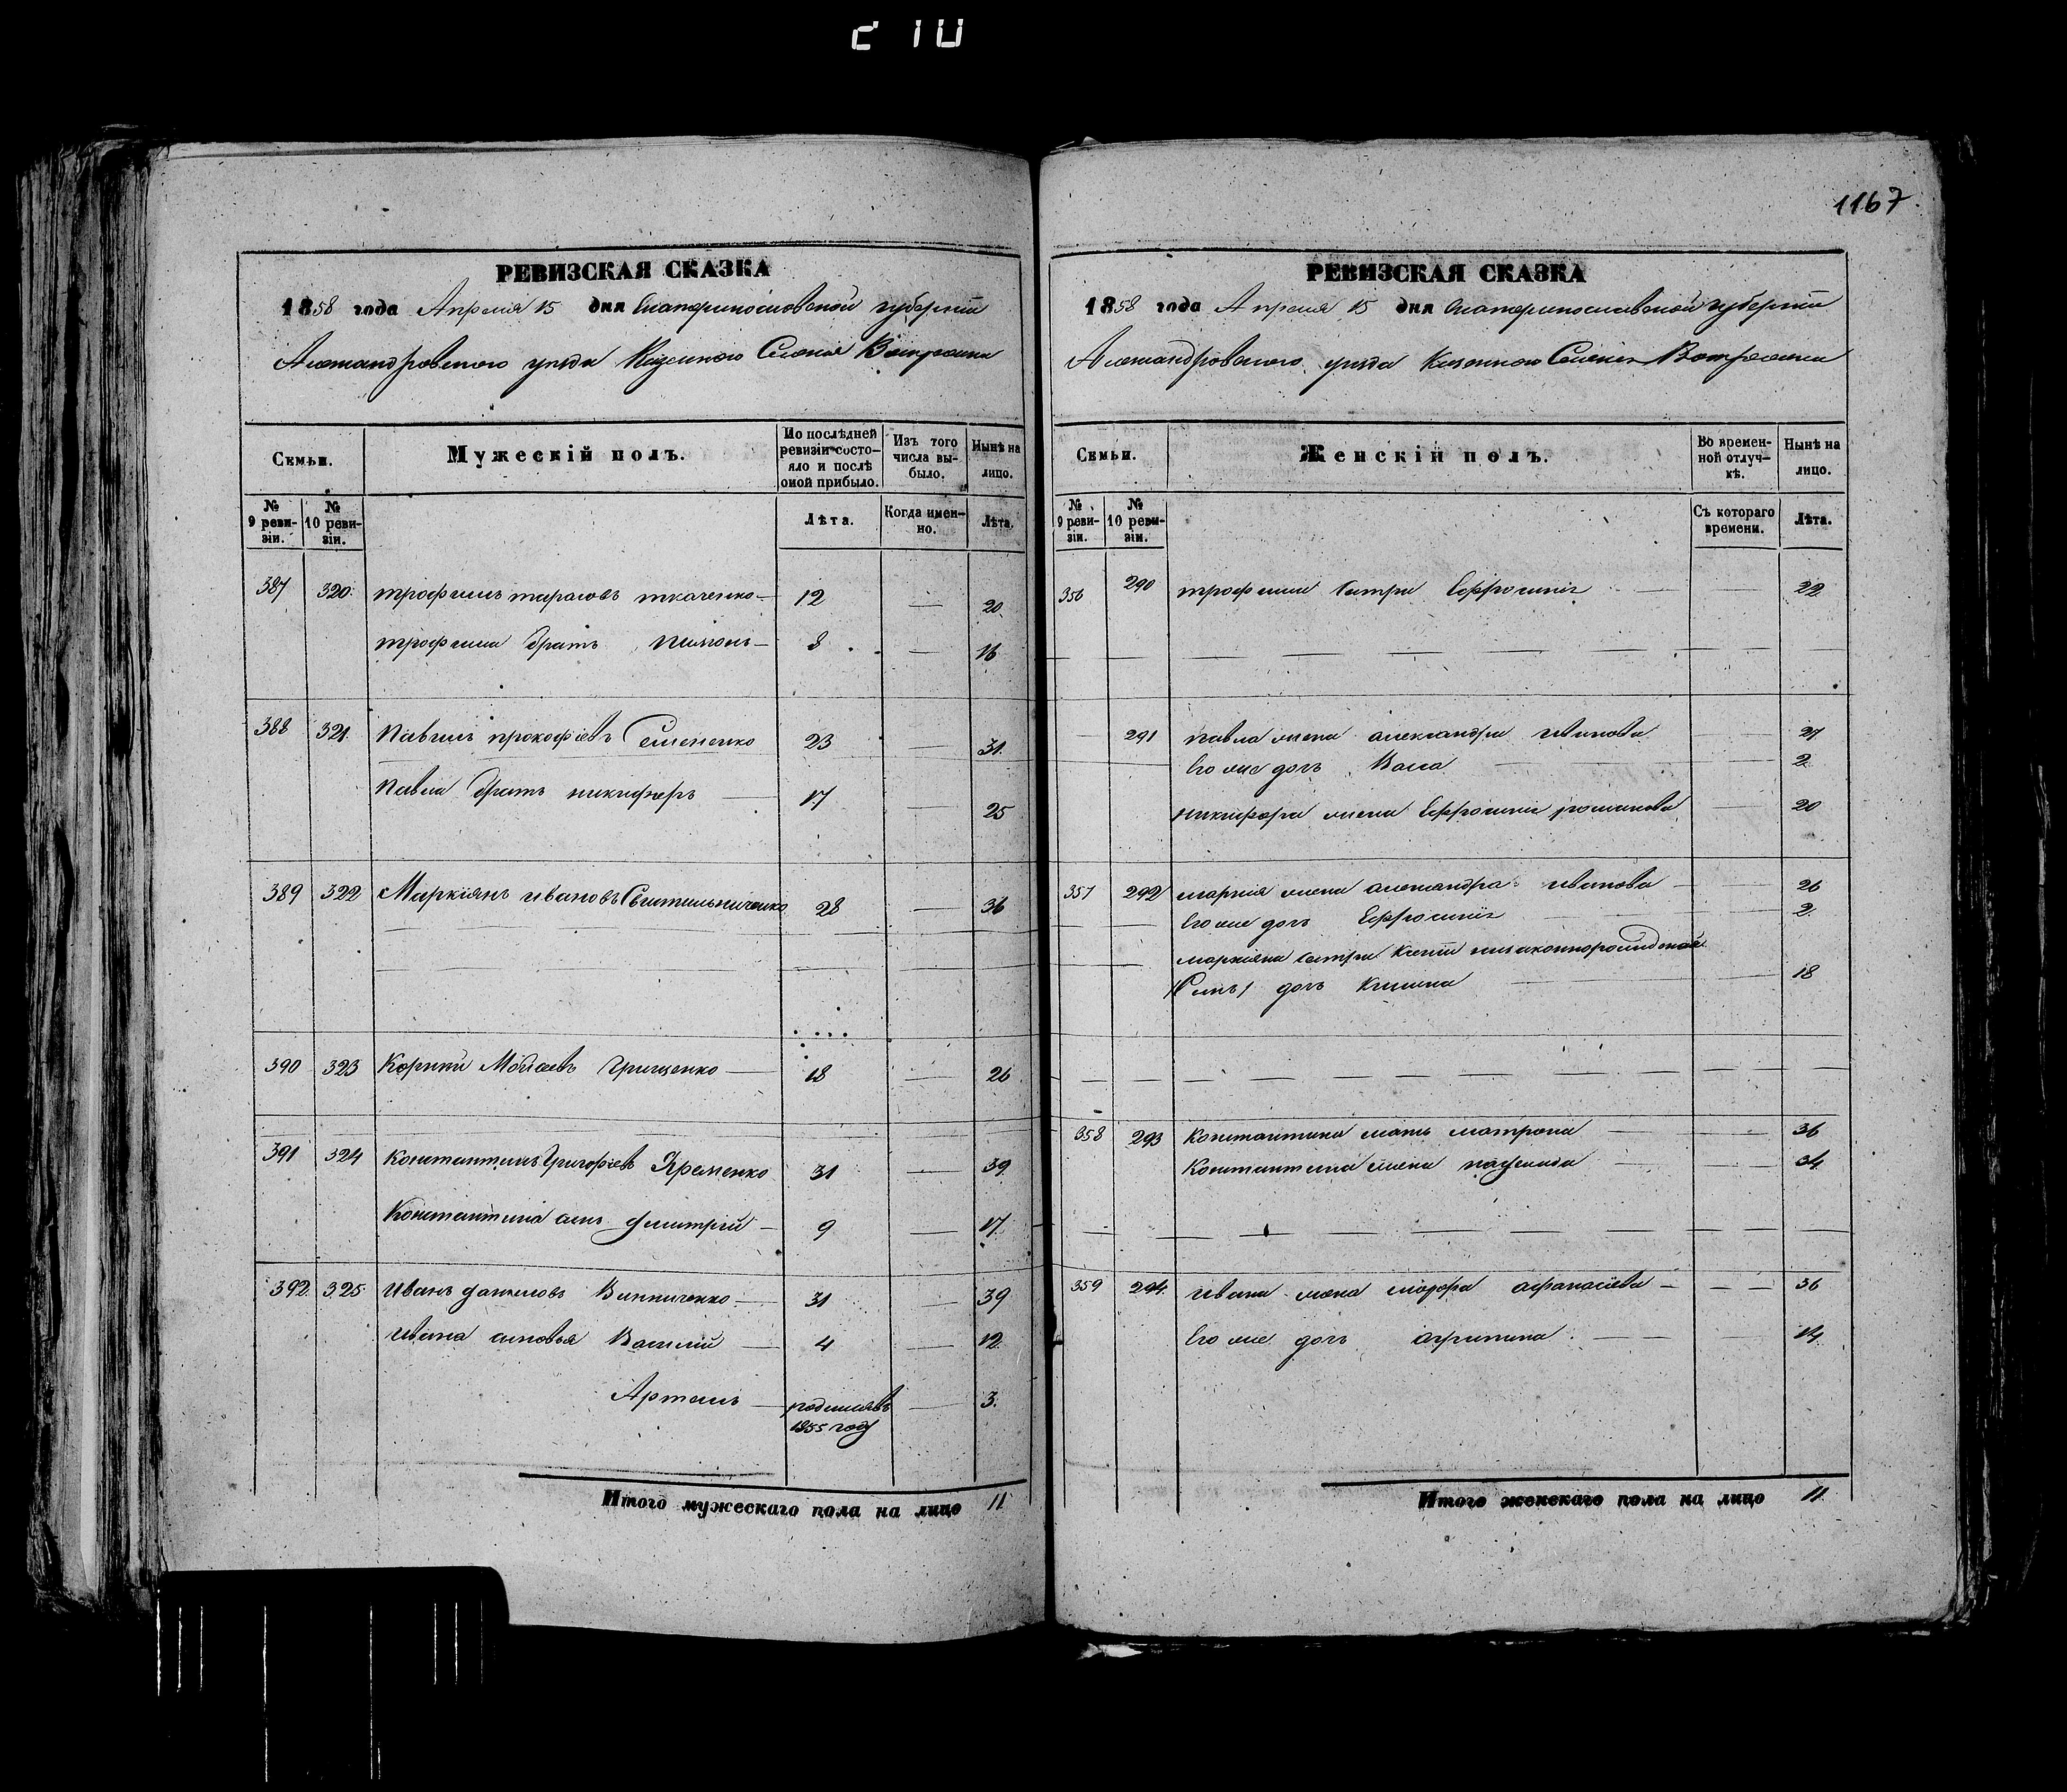 210
1167
РЕВИЗСКАЯ СКАЗКА
1858 года Апреля 15 дня Екатеринославской губернии
Александровского уезда Казенного Селения
Семьи.
Мужескій полъ.
По послѣдней ревизіи состояло и послѣ оной прибыло.
Изъ того числа выбыло.
Нынѣ на лицо.
№ 9 ревизіи.
№ 10 ревизіи.
Лѣта.
Когда именно.
Лѣта.
387 320 трофимъ тарасовъ ткаченко 12 — 20
трофима братъ пимонъ 8 — 16
388 321 павелъ прокофіевъ Семененко 23 — 31
павла братъ никифоръ — 17 — 25
389 322 Маркіянъ ивановъ Свитильниченко 28 — 36
390 323 Корнѣй Моисѣевъ Грищенко — 18 — 26
391 324 Константинъ Григорьевъ Яременко 31 — 39
Константина сынъ дмитрій — 9 — 17
392 325 Иванъ даниловъ Винниченко — 31 — 39
ивана сыновья Василій — 4 — 12
Артемъ — родился въ — 3
1855 году
Итого мужескаго пола на лицо 11
РЕВИЗСКАЯ СКАЗКА
1858 года Апреля 15 дня Екатеринославской губернии
Александровского уезда Казенного Селения
Семьи.
Женскій полъ.
Во временной отлучкѣ.
Нынѣ на лицо.
№ 9 ревизіи.
№ 10 ревизіи.
Съ котораго времени.
Лѣта.
356 290 трофима сестра Ефросинія — 22
291 павла жена александра иванова — 27
Его же дочь Васса — 2
никифора жена Ефросинія романова — 20
357 292 маркія жена александра иванова — 26
Его же дочь Ефросинія — 2
маркіяна сестры Ксеніи незаконнорожденной
дочь 18
358 293 Константина мать матрона — 36
Константина жена — 34
359 294 ивана жена марфа афанасіева — 36
Его же дочь агрипина — 14
Итого женскаго пола на лицо 11